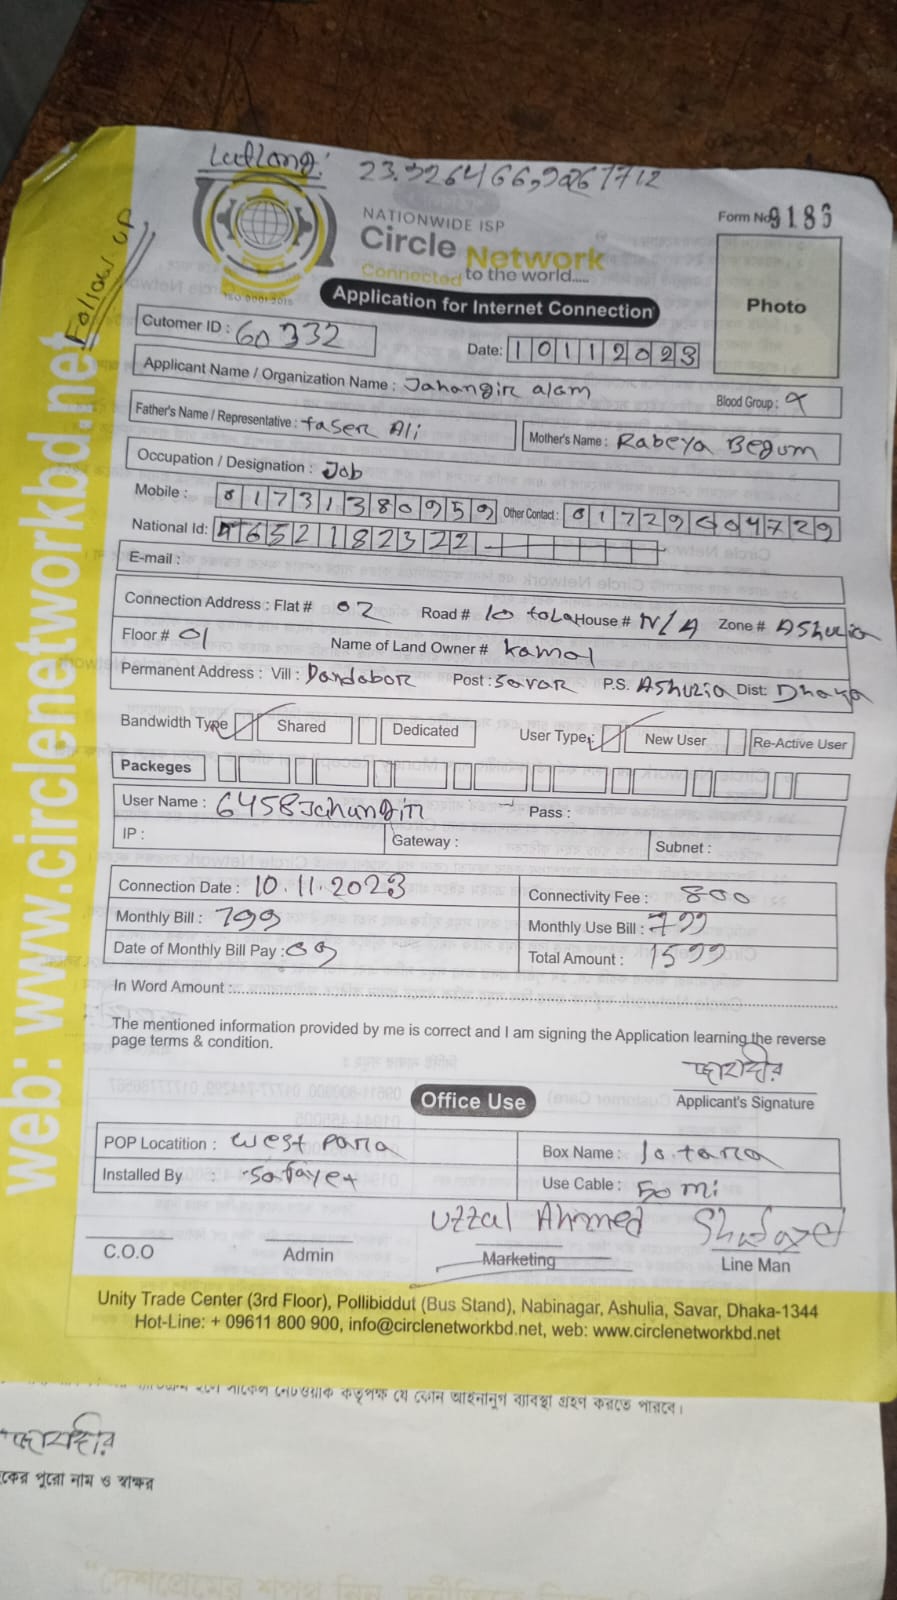 Latlong:
NATIONWIDE ISP
Form No 9186
Circle Network
Connected to the world.....
ISO 9001:2015
Follow UP
Application for Internet Connection
Photo
Cutomer ID : 60332
Date: 10112023
Applicant Name / Organization Name : Jahangir alam
Blood Group :
Father's Name / Representative : faser Ali
Mother's Name : Rabeya Begum
Occupation / Designation : Job
Mobile : 01731380959 Other Contact : 01729604729
National Id: 4652182322
E-mail :
Connection Address : Flat # 02 Road # 10 tola House # N/A Zone # Ashulia
Floor # 01 Name of Land Owner # Kamal
Permanent Address : Vill : Dandabor Post : Savar P.S. Ashulia Dist: Dhaka
Bandwidth Type Shared Dedicated User Type: New User Re-Active User
Packeges
User Name : 6458Jahangir Pass :
IP : Gateway : Subnet :
Connection Date : 10.11.2023 Connectivity Fee : 800
Monthly Bill : 799 Monthly Use Bill : 799
Date of Monthly Bill Pay : 09 Total Amount : 1599
In Word Amount :
The mentioned information provided by me is correct and I am signing the Application learning the reverse
page terms & condition.
জাহাঙ্গীর
Applicant's Signature
Office Use
POP Locatition : West para Box Name : 10.tara
Installed By : Safayet Use Cable : 50 mi
Uzzal Ahmed
C.O.O Admin Marketing Line Man
Unity Trade Center (3rd Floor), Pollibiddut (Bus Stand), Nabinagar, Ashulia, Savar, Dhaka-1344
Hot-Line: + 09611 800 900, info@circlenetworkbd.net, web: www.circlenetworkbd.net
web: www.circlenetworkbd.net
কর্তৃপক্ষ যে কোন আইনানুগ ব্যাবস্থা গ্রহণ করতে পারবে।
জাহাঙ্গীর
পুরো নাম ও স্বাক্ষর